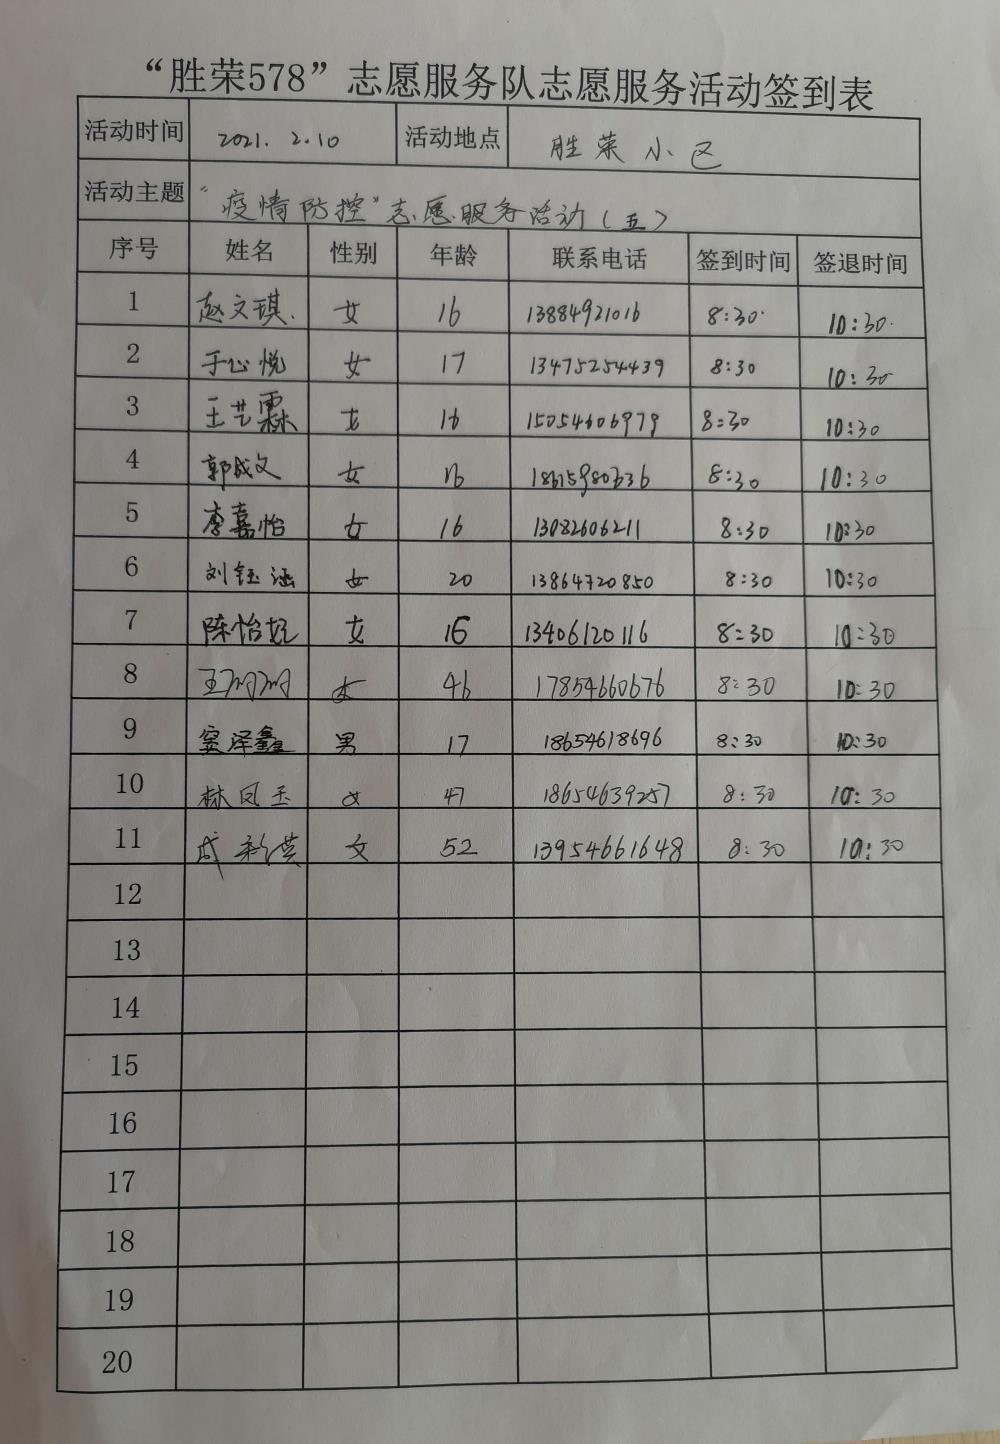 “胜荣578”志愿服务队志愿服务活动签到表
活动时间 2021. 2.10 活动地点 胜荣小区
活动主题 “疫情防控”志愿服务活动（五）
序号 姓名 性别 年龄 联系电话 签到时间 签退时间
1 赵文琪 女 16 13884921016 8:30 10:30
2 于心悦 女 17 13475254439 8:30 10:30
3 王艺霖 女 16 15054606979 8:30 10:30
4 郭成文 女 16 18615980636 8:30 10:30
5 李嘉怡 女 16 13082606211 8:30 10:30
6 刘钰涵 女 20 13864720850 8:30 10:30
7 陈怡妃 女 16 13406120116 8:30 10:30
8 王 女 46 17854660676 8:30 10:30
9 窦泽鑫 男 17 18654618696 8:30 10:30
10 林凤玉 女 47 18654639257 8:30 10:30
11 成 英 女 52 13954661648 8:30 10:30
12
13
14
15
16
17
18
19
20